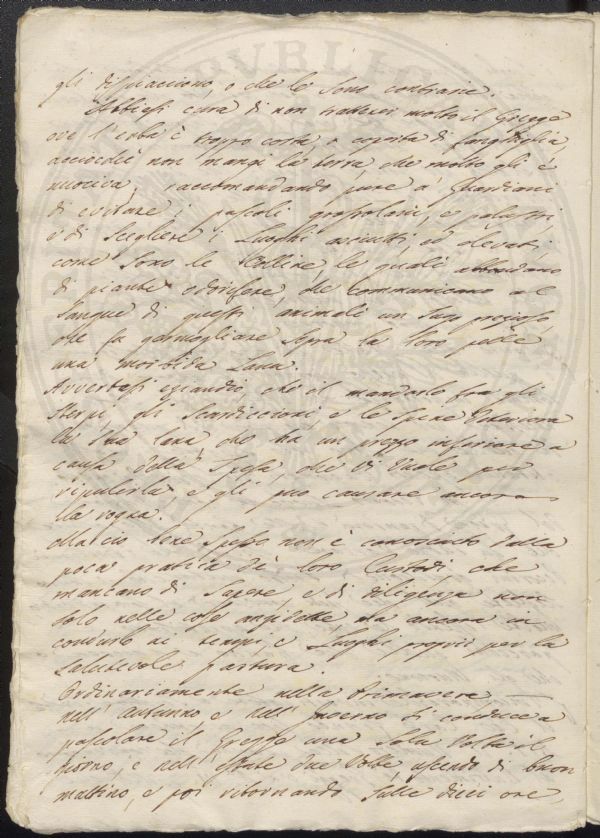 gli dispiacciono, o che le sono contrarie.
Abbiasi cura di non trattener molto il Gregge
ove l'erba è troppo corta, e coperta di fanghiglia,
acciocchè non mangi la terra, che molto gli è
nuociva, raccomandando pure a' Guardiani
di evitare i pascoli grossolani, e palustri,
e di scegliere i Luoghi asciutti, ed elevati,
come sono le Colline, le quali abbondano
di piante odorifere, che communicano al
sangue di questi animali un sugo prezioso,
che fa germogliare sopra la loro pelle
una morbida Lana.
Avvertasi eziandio, che il mandarlo fra gli
sterpi, gli Scardiccioni, e le spine deteriora
la sua lana, che ha un prezzo inferiore a
causa della spesa, che vi vuole per
ripulirla, e gli può causare ancora
la rogna.
Ma ciò bene spesso non è conosciuto dalla
poca pratica de' loro Custodi, che
mancano di sapere, e di diligenza non
solo nelle cose anzidette, ma ancora in
condurlo ai tempi, e Luoghi proprj per la
salutevole pastura.
Ordinariamente nella Primavera
nell'Autunno, e nell'Inverno si conduce a
pascolare il Gregge una sola volta il
giorno, e nell'estate due volte uscendo di buon
mattino, e poi ritornando sulle dieci ore,
PVBLIC